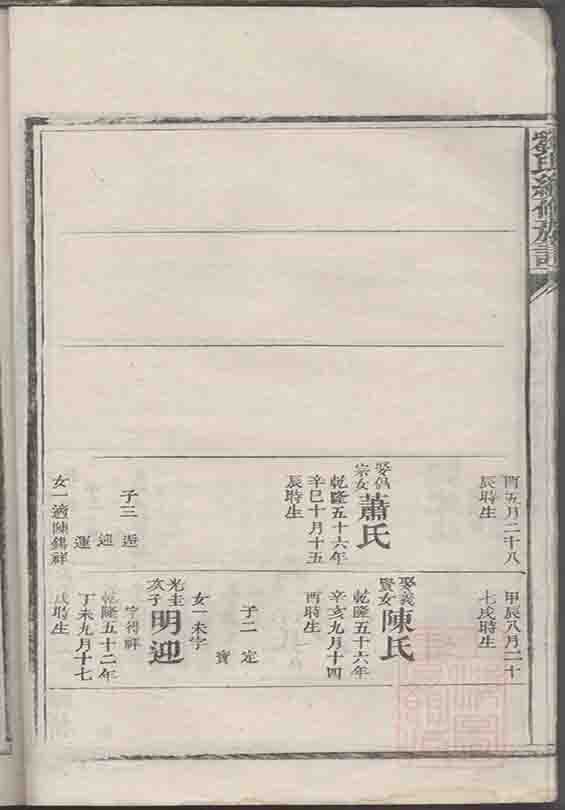 劉氏續修族譜
酉五月二十八
辰時生
娶倡
宗女
蕭氏
乾隆五十六年
辛巳十月十五
辰時生
子三
逝
迎
運
女一適陳錫祥
甲辰八月二十
七戌時生
娶義
賢女
陳氏
乾隆五十六年
辛亥九月十四
酉時生
子二
定
寶
女一未字
光圭
次子
明迎
字得祥
乾隆五十二年
丁未九月十七
戌時生